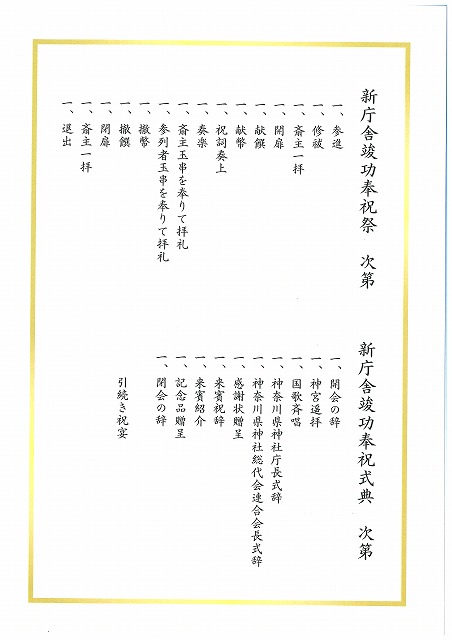 新庁舎竣功奉祝祭 次第
一、参進
一、修祓
一、斎主一拝
一、開扉
一、献饌
一、献幣
一、祝詞奏上
一、奏楽
一、斎主玉串を奉りて拝礼
一、参列者玉串を奉りて拝礼
一、撤幣
一、撤饌
一、閉扉
一、斎主一拝
一、退出
新庁舎竣功奉祝式典 次第
一、開会の辞
一、神宮遥拝
一、国歌斉唱
一、神奈川県神社庁長式辞
一、神奈川県神社総代会連合会長式辞
一、感謝状贈呈
一、来賓祝辞
一、来賓紹介
一、記念品贈呈
一、閉会の辞
引続き祝宴